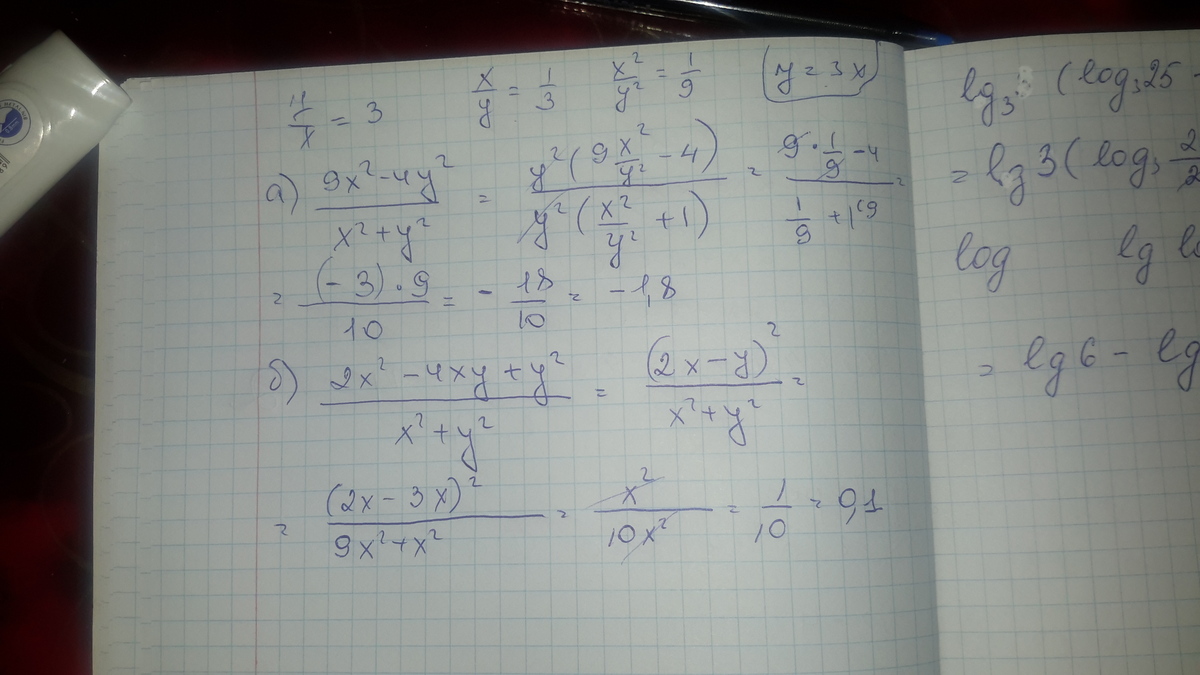 y/x = 3   x/y = 1/3   x²/y² = 1/9   y = 3x
а) (9x²-4y²)/(x²+y²) = y²(9 x²/y² - 4)/y²(x²/y² + 1) = (9·1/9 - 4)/(1/9 + 1^(9) =
= (-3)·9/10 = - 18/10 = -1,8
б) (2x² - 4xy + y²)/(x²+y²) = (2x-y)²/(x²+y²) =
= (2x - 3x)²/(9x²+x²) = x²/10x² = 1/10 = 0,1
lg 3 (log₃25 -
= lg 3 ( log₃ 2/2
log   lg
= lg 6 - lg